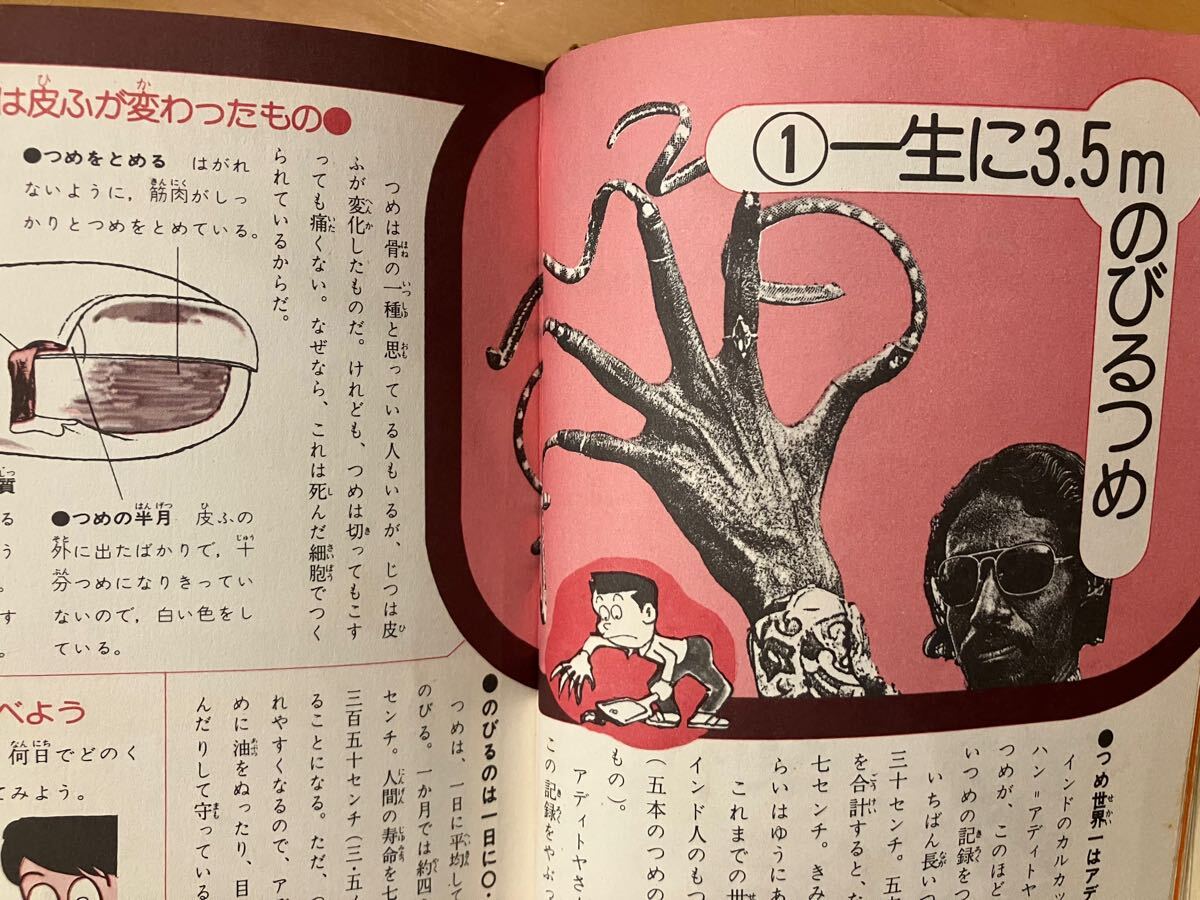 ①一生に3.5m
のびるつめ
●つめ世界一はアデ
インドのカルカッ
ハン＝アディトヤ
つめが、このほど
いつめの記録をつ
いちばん長いつ
三十センチ。五
を合計すると、
七センチ。きみ
らいはゆうにあ
これまでの世
インド人のもつ
（五本のつめの
もの）。
アディトヤさ
この記録をやぶっ
は皮ふが変わったもの●
●つめをとめる　はがれ
ないように，筋肉がしっ
かりとつめをとめている。
つめは骨の一種と思っている人もいるが、じつは皮
ふが変化したものだ。けれども、つめは切ってもこす
っても痛くない。なぜなら、これは死んだ細胞でつく
られているからだ。
質
●つめの半月　皮ふの
外に出たばかりで，十
分つめになりきってい
ないので，白い色をし
ている。
る
う
。
す
。
●のびるのは一日に〇・
つめは、一日に平均して
のびる。一か月では約四
センチ。人間の寿命を七
三百五十センチ（三・五
ることになる。ただ、つ
れやすくなるので、ア
めに油をぬったり、目
んだりして守っている
べよう
何日でどのく
てみよう。